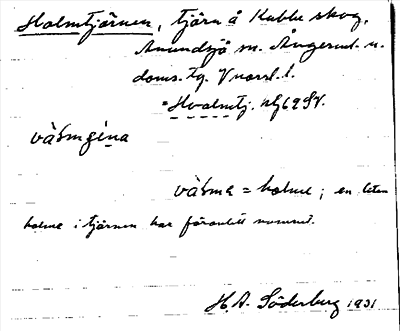 Holmtjärnen, tjärn å Kubbe skog,
Anundsjö sn. Ångerml. n.
doms. tg. Vnorrl. l.
=Hvalmtj. 69 SV.
vàłmǥèna
vàłma = holme; en liten
holme i tjärnen har föranlett namnet.
H. A. Söderberg 1931